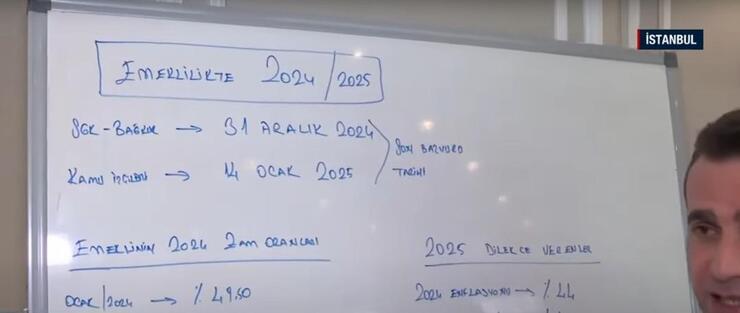 İSTANBUL
EMEKLİLİKTE 2024/2025
SGK-BAĞKUR → 31 ARALIK 2024
SON BAŞVURU
TARİHİ
KAMU İŞÇİSİ → 14 OCAK 2025
EMEKLİNİN 2024 ZAM ORANLARI
2025 DİLEKÇE VERENLER
OCAK/2024 → % 49.50
2024 ENFLASYONU → % 44